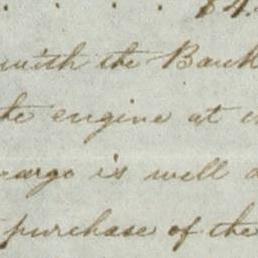 $4.
with the Bank
the engine at
cargo is well
purchase of the